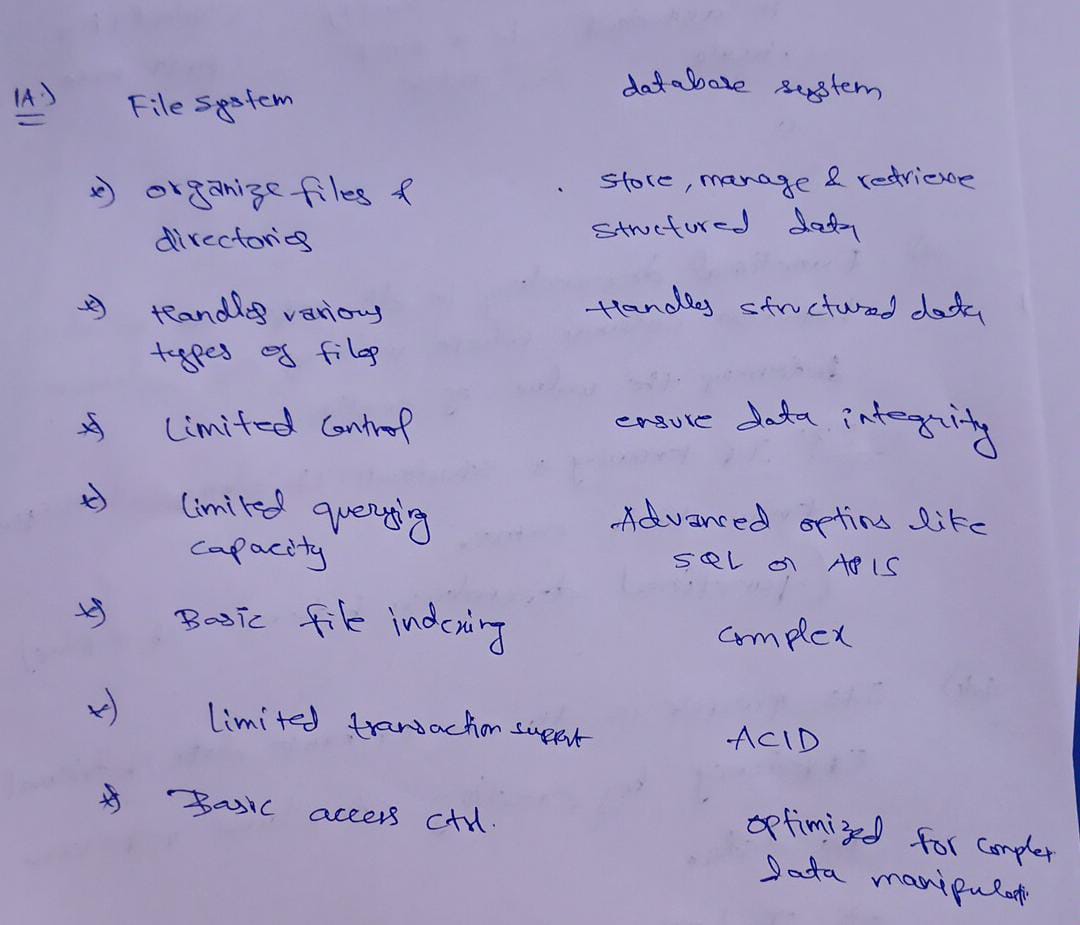 1A.) File system database system
*) organize files & store, manage & retrieve
directories structured data
*) Handles various Handles structured data
types of files
*) Limited Control ensure data integrity
*) limited querying Advanced options like
capacity SQL or APIS
*) Basic file indexing complex
*) limited transaction support ACID
*) Basic access ctrl. optimized for complex
data manipulati